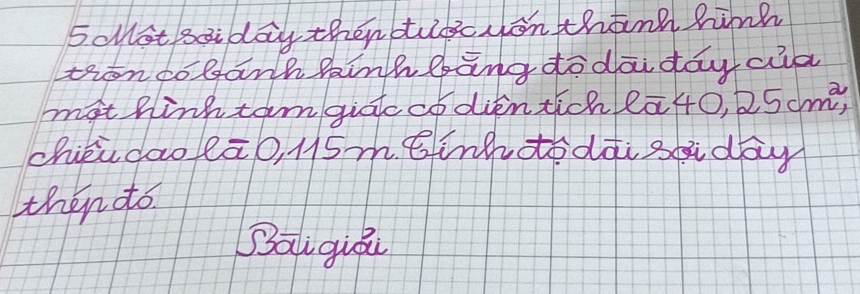 5. Một sợi dây thép được uốn thành hình
tròn có bánh kính bằng độ dài đáy của
một hình tam giác có diện tích là 40,25 cm²,
chiều cao là 0,115 m. Tính độ dài sợi dây
thép đó.
Bài giải